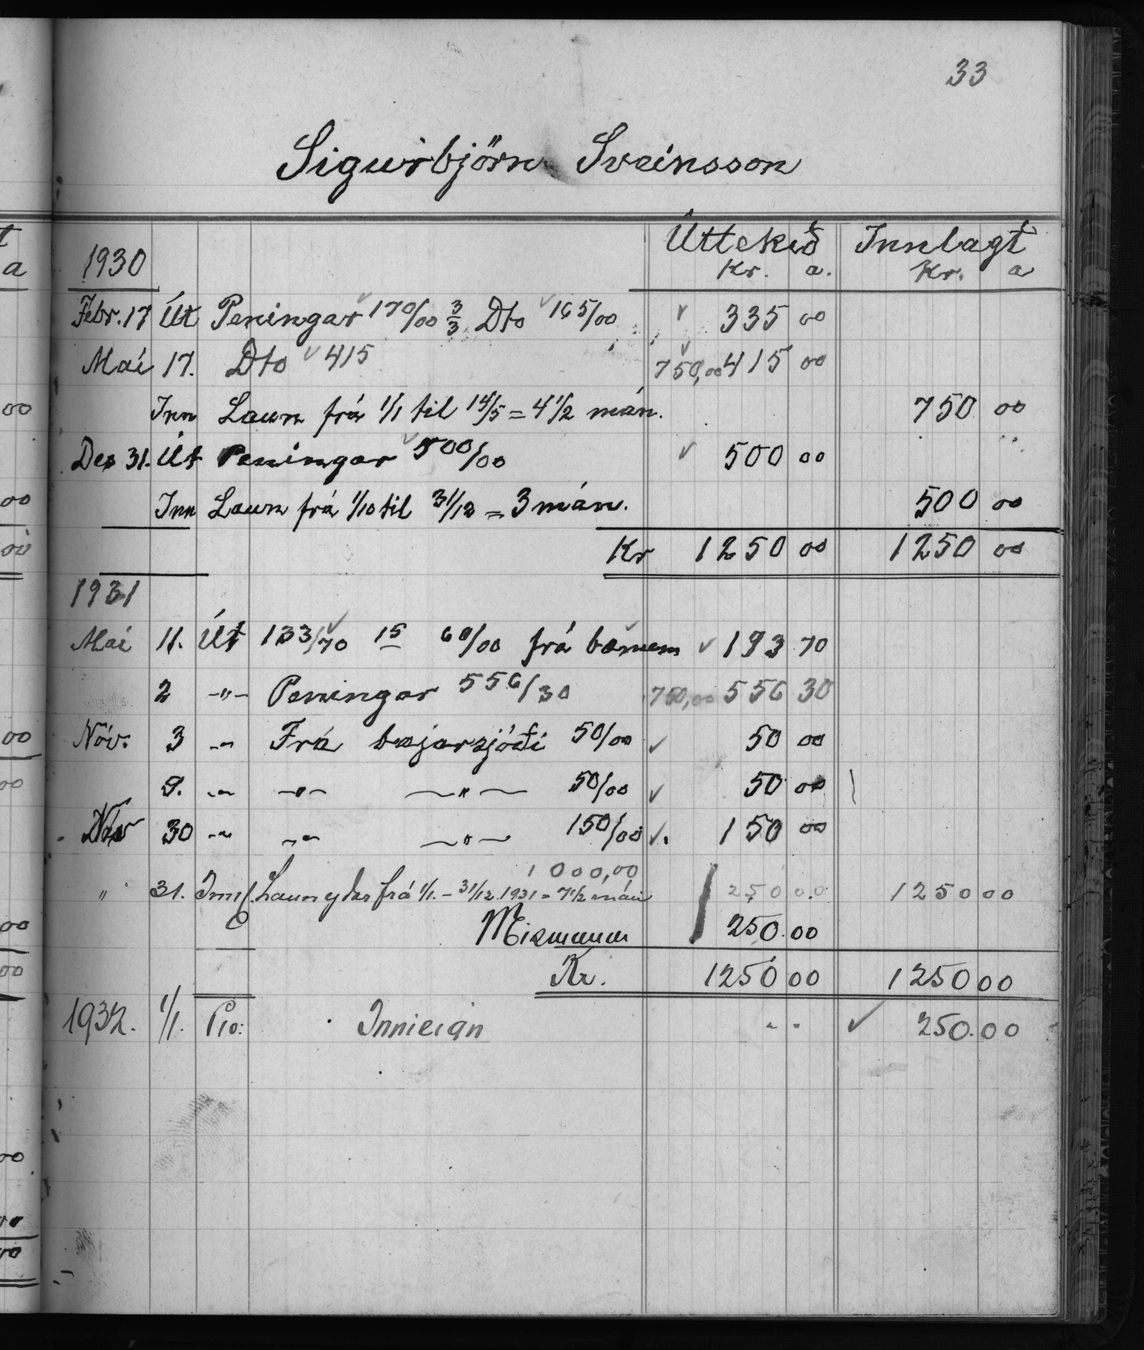 33
Sigurbjörn Sveinsson
1930 Úttekið Innlagt
Kr. a. Kr. a
Febr. 17 Út Peningar 170/00 3/3 Dto 165/00 335 00
Maí 17. Dto 415 750,00 415 00
Inn Laun frá 1/1 til 14/5 = 4 1/2 mán. 750 00
Des 31. Út Peningar 500/00 500 00
Inn Laun frá 1/10 til 31/12 = 3 mán. 500 00
Kr 1250 00 1250 00
1931
Maí 11. Út 133/70 15 60/00 frá bænum 193 70
2 -"- Peningar 556/30 750,00 556 30
Nóv. 3 -"- Frá bæjarsjóði 50/00 50 00
9. -"- -"- -"- 50/00 50 00
30 -"- -"- -"- 150/00 150 00
1000,00
" 31. Inn f. Laun frá 1/1. - 31/12 1931 = 7 1/2 mán 250 00 1250 00
Mismunur 250.00
Kr. 1250 00 1250 00
1932. 1/1. Pro: Inneign " " 250.00